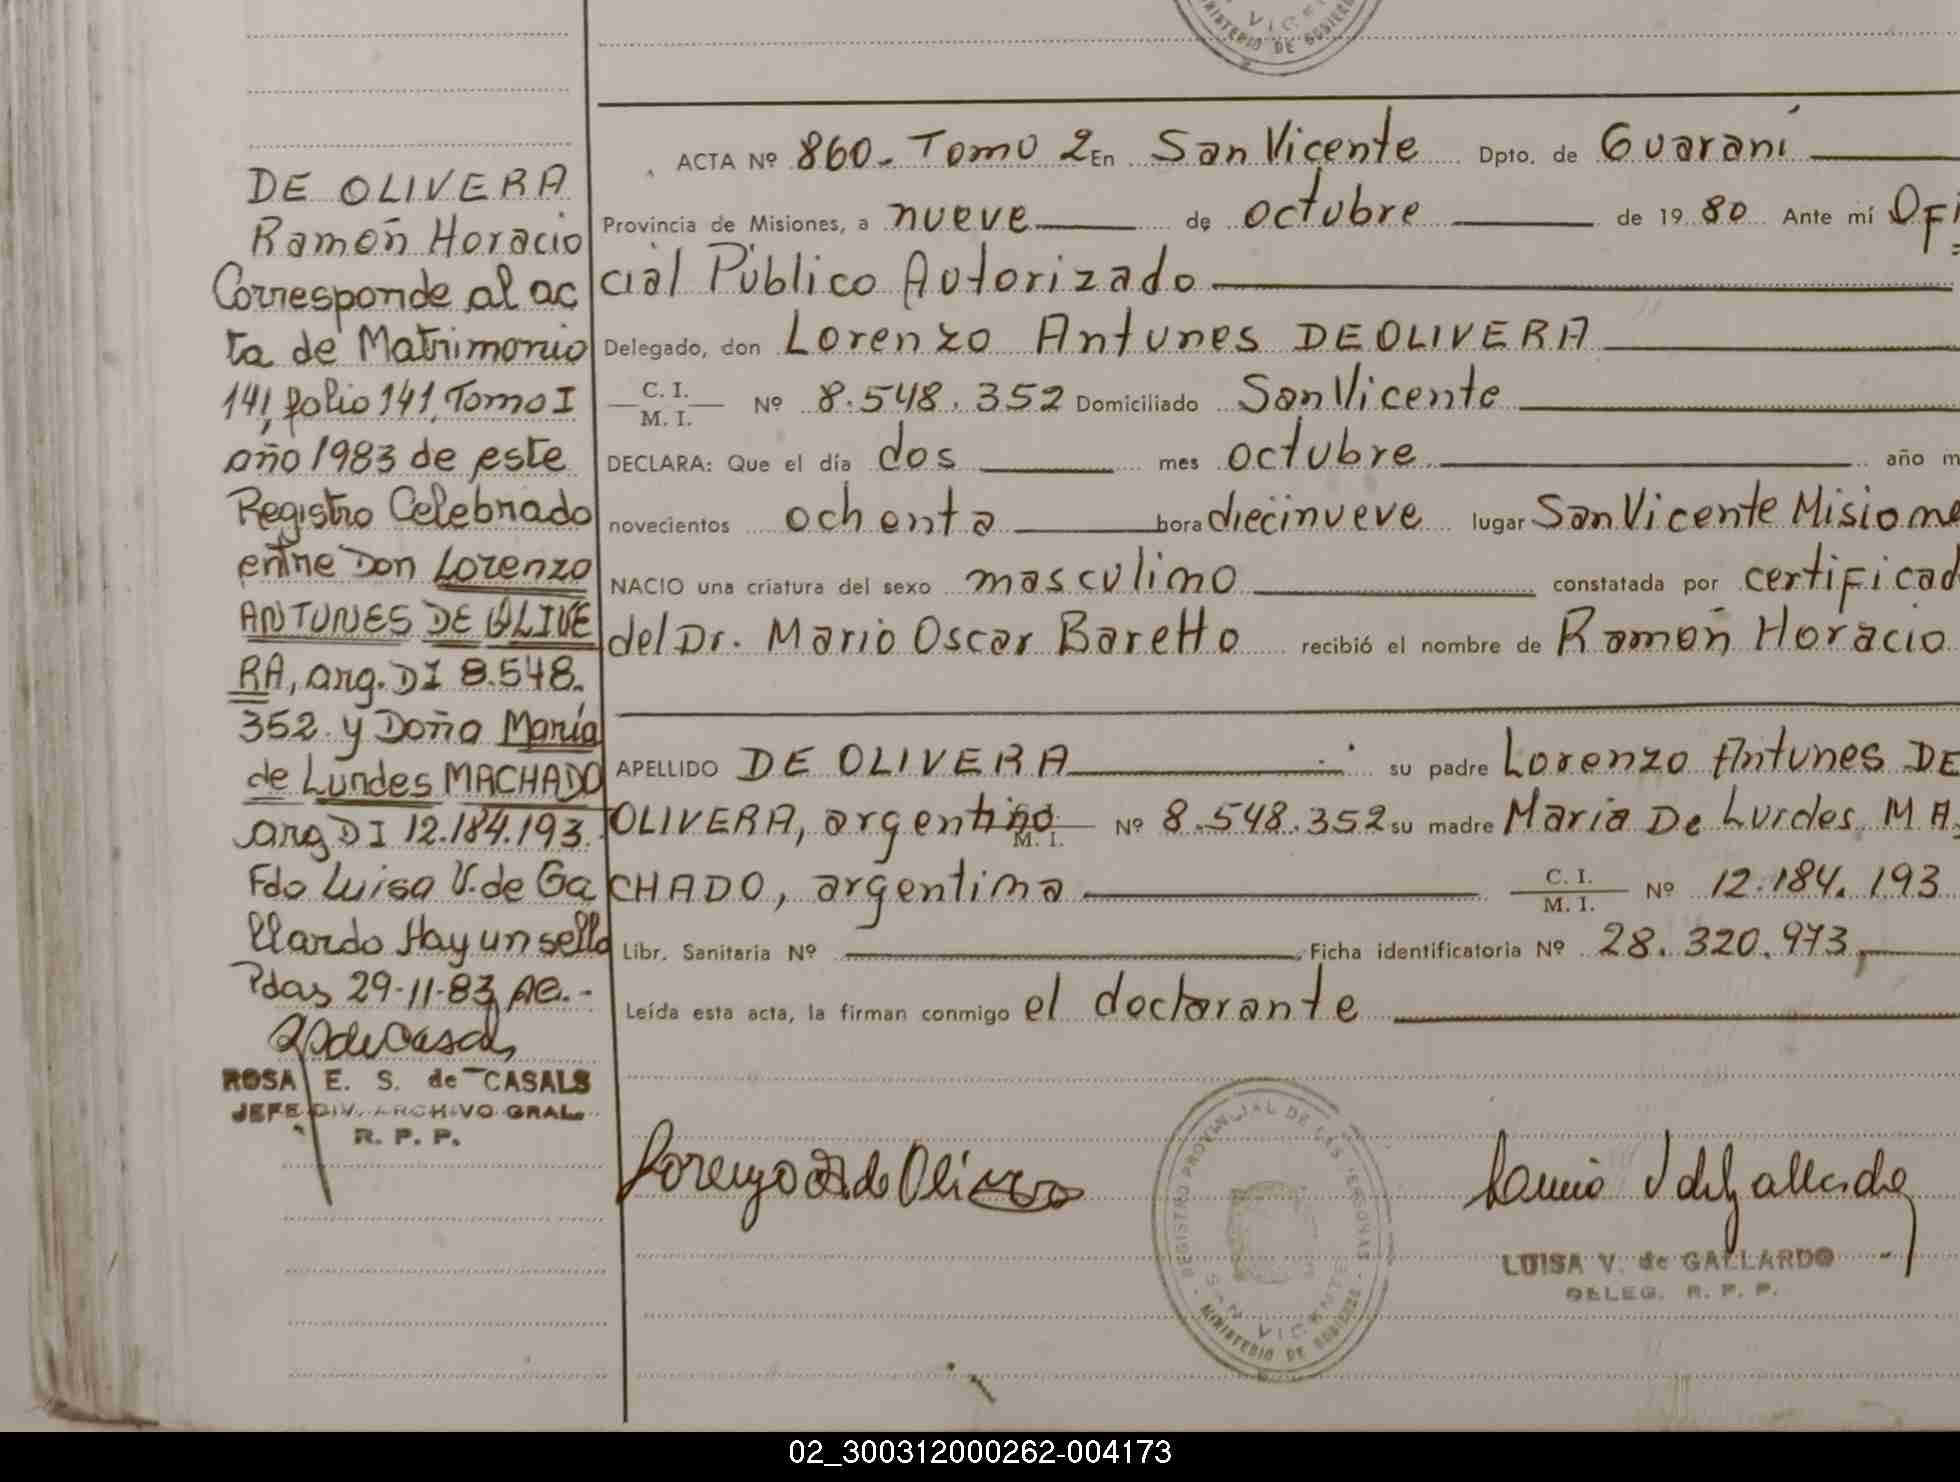 MINISTERIO DE GOBIERNO
DE OLIVERA
Ramón Horacio
Corresponde al ac
ta de Matrimonio
141, folio 141, Tomo I
año 1983 de este
Registro Celebrado
entre Don Lorenzo
ANTUNES DE OLIVE
RA, arg. DI 8.548.
352. y Doña María
de Lurdes MACHADO
arg DI 12.184.193.
Fdo Luisa V. de Ga
llardo Hay un sello
Pdas 29-11-83
ROSA E. S. de CASALS
JEFE DIV. ARCHIVO GRAL.
R. P. P.
ACTA Nº 860. Tomo 2 En San Vicente Dpto. de Guaraní
Provincia de Misiones, a nueve de octubre de 19 80 Ante mí Ofi
cial Público Autorizado
Delegado, don Lorenzo Antunes DE OLIVERA
C. I.
M. I. Nº 8.548.352 Domiciliado San Vicente
DECLARA: Que el día dos mes octubre año m
novecientos ochenta hora diecinueve lugar San Vicente Misione
NACIO una criatura del sexo masculino constatada por certificad
del Dr. Mario Oscar Baretto recibió el nombre de Ramón Horacio
APELLIDO DE OLIVERA su padre Lorenzo Antunes DE
OLIVERA, argentino M. I. Nº 8.548.352 su madre Maria De Lurdes MA
CHADO, argentina C. I. M. I. Nº 12.184.193
Libr. Sanitaria Nº Ficha identificatoria Nº 28.320.973
Leída esta acta, la firman conmigo el declarante
REGISTRO PROVINCIAL DE LAS PERSONAS
SAN VICENTE
MINISTERIO DE GOBIERNO
LUISA V. de GALLARDO
DELEG. R. P. P.
02_300312000262-004173